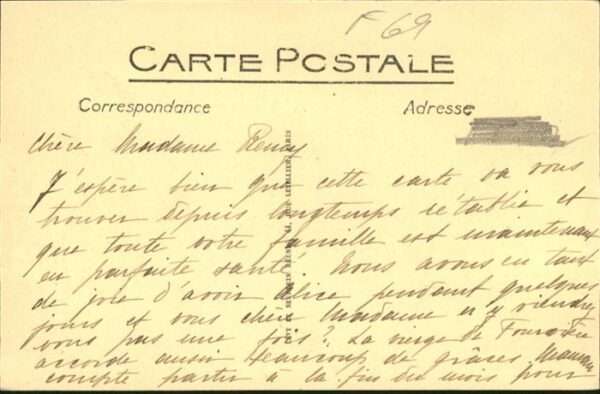 F 69
CARTE POSTALE
Correspondance
Adresse
Chère Madame Remy
J'espère bien que cette carte va vous
trouver depuis longtemps rétablie et
que toute votre famille est maintenant
en parfaite santé. Nous avons eu tant
de joie d'avoir Alice pendant quelques
jours et vous chère Madame n'y viendrez
vous pas une fois? La vierge de Fourvière
accorde aussi beaucoup de grâces Maman
compte partir à la fin du mois pour